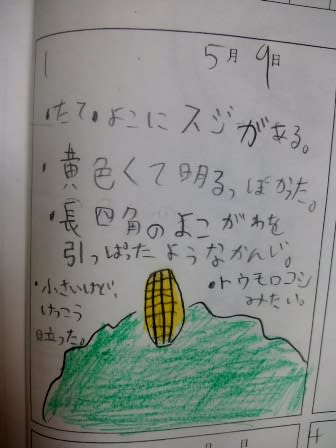 1
5月9日
・たて、よこにスジがある。
・黄色くて明るっぽかった。
・長四角のよこがわを
引っぱったようなかんじ。
・小さいけど、
けっこう
目立った。
・トウモロコシ
みたい。
4